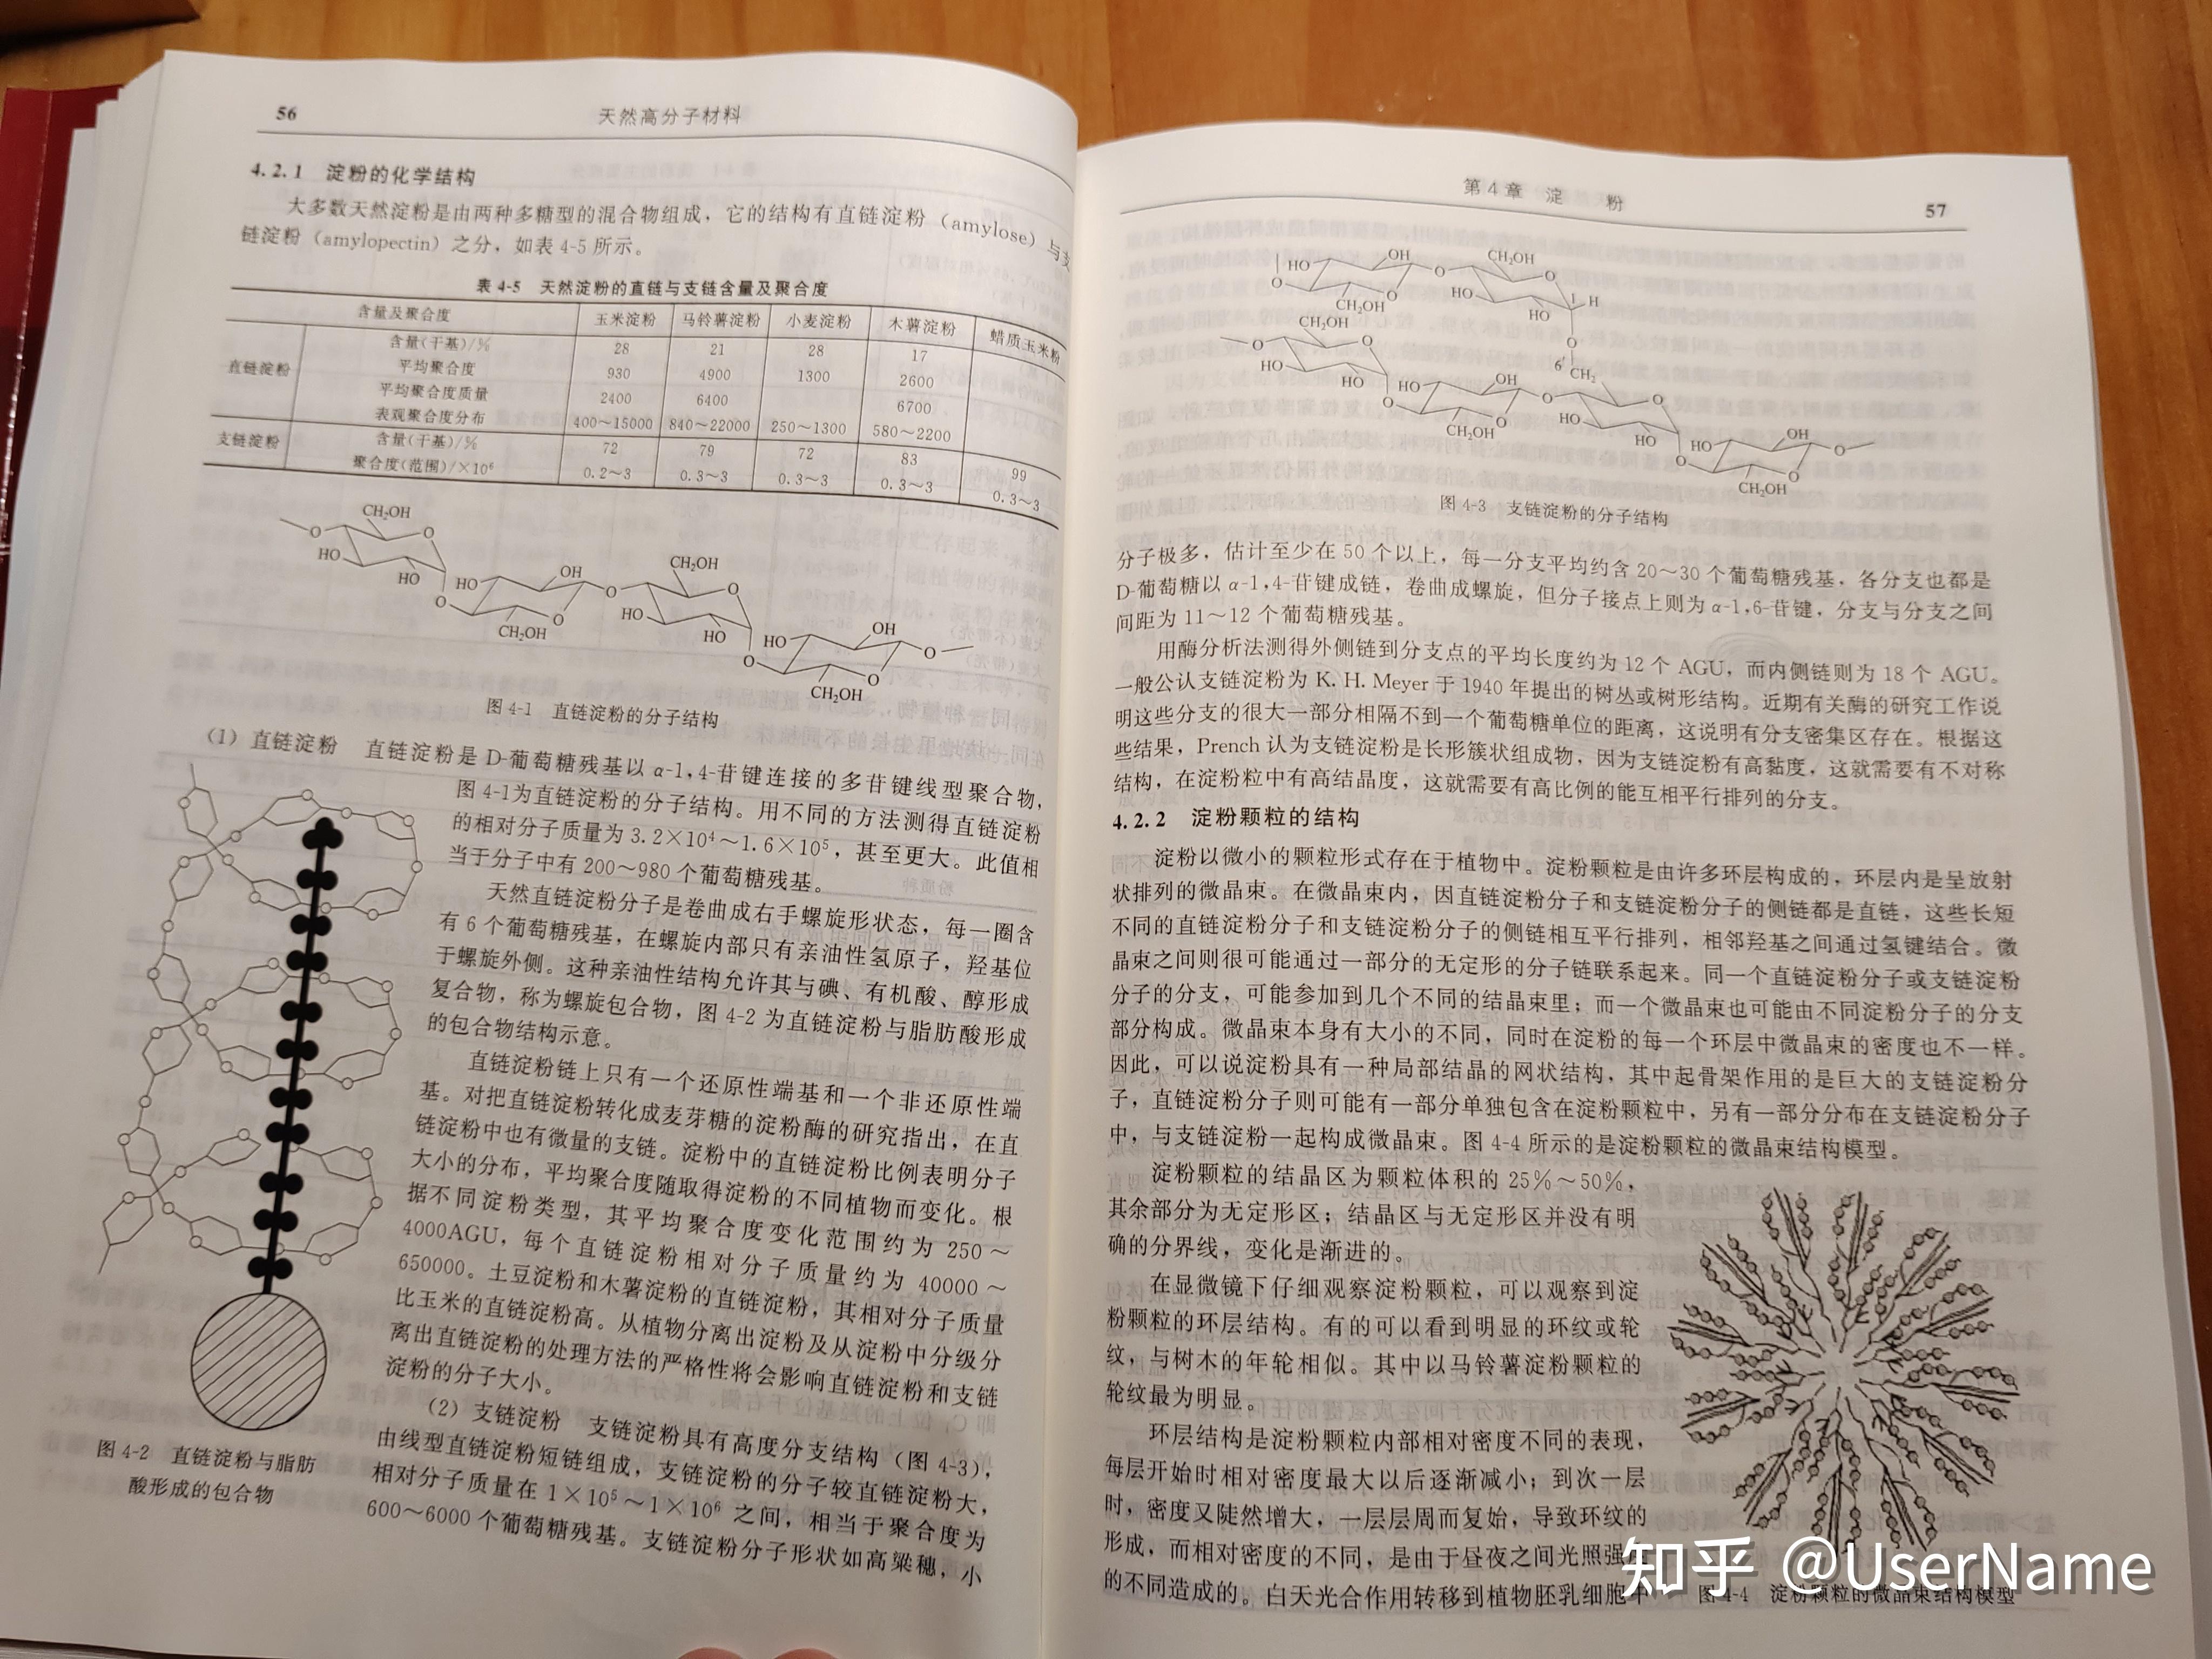 56 天然高分子材料
4.2.1 淀粉的化学结构
大多数天然淀粉是由两种多糖型的混合物组成，它的结构有直链淀粉（amylose）与支
链淀粉（amylopectin）之分，如表 4-5 所示。
表 4-5 天然淀粉的直链与支链含量及聚合度
含量及聚合度 玉米淀粉 马铃薯淀粉 小麦淀粉 木薯淀粉 蜡质玉米粉
直链淀粉 含量(干基)/% 28 21 28 17
平均聚合度 930 4900 1300 2600
平均聚合度质量 2400 6400 6700
表观聚合度分布 400～15000 840～22000 250～1300 580～2200
支链淀粉 含量(干基)/% 72 79 72 83 99
聚合度(范围)/×10⁶ 0.2～3 0.3～3 0.3～3 0.3～3 0.3～3
CH₂OH
O O
HO
HO
CH₂OH
HO OH O O
O O HO
CH₂OH HO
HO OH O
O O
CH₂OH
图 4-1 直链淀粉的分子结构
（1）直链淀粉 直链淀粉是 D-葡萄糖残基以 α-1,4-苷键连接的多苷键线型聚合物，
图 4-1为直链淀粉的分子结构。用不同的方法测得直链淀粉
的相对分子质量为 3.2×10⁴～1.6×10⁵，甚至更大。此值相
当于分子中有 200～980 个葡萄糖残基。
天然直链淀粉分子是卷曲成右手螺旋形状态，每一圈含
有 6 个葡萄糖残基，在螺旋内部只有亲油性氢原子，羟基位
于螺旋外侧。这种亲油性结构允许其与碘、有机酸、醇形成
复合物，称为螺旋包合物，图 4-2 为直链淀粉与脂肪酸形成
的包合物结构示意。
直链淀粉链上只有一个还原性端基和一个非还原性端
基。对把直链淀粉转化成麦芽糖的淀粉酶的研究指出，在直
链淀粉中也有微量的支链。淀粉中的直链淀粉比例表明分子
大小的分布，平均聚合度随取得淀粉的不同植物而变化。根
据不同淀粉类型，其平均聚合度变化范围约为 250～
4000AGU，每个直链淀粉相对分子质量约为 40000～
650000。土豆淀粉和木薯淀粉的直链淀粉，其相对分子质量
比玉米的直链淀粉高。从植物分离出淀粉及从淀粉中分级分
离出直链淀粉的处理方法的严格性将会影响直链淀粉和支链
淀粉的分子大小。
图 4-2 直链淀粉与脂肪
酸形成的包合物
（2）支链淀粉 支链淀粉具有高度分支结构（图 4-3），
由线型直链淀粉短链组成，支链淀粉的分子较直链淀粉大，
相对分子质量在 1×10⁵～1×10⁶ 之间，相当于聚合度为
600～6000 个葡萄糖残基。支链淀粉分子形状如高粱穗，小
第 4 章 淀 粉 57
HO OH O CH₂OH
O O O
CH₂OH HO 1 H
CH₂OH HO
O O O
HO 6 CH₂
HO HO OH O O
O O HO
CH₂OH HO HO OH O
O O
CH₂OH
图 4-3 支链淀粉的分子结构
分子极多，估计至少在 50 个以上，每一分支平均约含 20～30 个葡萄糖残基，各分支也都是
D-葡萄糖以 α-1,4-苷键成链，卷曲成螺旋，但分子接点上则为 α-1,6-苷键，分支与分支之间
间距为 11～12 个葡萄糖残基。
用酶分析法测得外侧链到分支点的平均长度约为 12 个 AGU，而内侧链则为 18 个 AGU。
一般公认支链淀粉为 K. H. Meyer 于 1940 年提出的树丛或树形结构。近期有关酶的研究工作说
明这些分支的很大一部分相隔不到一个葡萄糖单位的距离，这说明有分支密集区存在。根据这
些结果，Prench 认为支链淀粉是长形簇状组成物，因为支链淀粉有高黏度，这就需要有不对称
结构，在淀粉粒中有高结晶度，这就需要有高比例的能互相平行排列的分支。
4.2.2 淀粉颗粒的结构
淀粉以微小的颗粒形式存在于植物中。淀粉颗粒是由许多环层构成的，环层内是呈放射
状排列的微晶束。在微晶束内，因直链淀粉分子和支链淀粉分子的侧链都是直链，这些长短
不同的直链淀粉分子和支链淀粉分子的侧链相互平行排列，相邻羟基之间通过氢键结合。微
晶束之间则很可能通过一部分的无定形的分子链联系起来。同一个直链淀粉分子或支链淀粉
分子的分支，可能参加到几个不同的结晶束里；而一个微晶束也可能由不同淀粉分子的分支
部分构成。微晶束本身有大小的不同，同时在淀粉的每一个环层中微晶束的密度也不一样。
因此，可以说淀粉具有一种局部结晶的网状结构，其中起骨架作用的是巨大的支链淀粉分
子，直链淀粉分子则可能有一部分单独包含在淀粉颗粒中，另有一部分分布在支链淀粉分子
中，与支链淀粉一起构成微晶束。图 4-4 所示的是淀粉颗粒的微晶束结构模型。
淀粉颗粒的结晶区为颗粒体积的 25%～50%，
其余部分为无定形区；结晶区与无定形区并没有明
确的分界线，变化是渐进的。
在显微镜下仔细观察淀粉颗粒，可以观察到淀
粉颗粒的环层结构。有的可以看到明显的环纹或轮
纹，与树木的年轮相似。其中以马铃薯淀粉颗粒的
轮纹最为明显。
环层结构是淀粉颗粒内部相对密度不同的表现，
每层开始时相对密度最大以后逐渐减小；到次一层
时，密度又陡然增大，一层层周而复始，导致环纹的
形成，而相对密度的不同，是由于昼夜之间光照强
的不同造成的。白天光合作用转移到植物胚乳细胞中
图 4-4 淀粉颗粒的微晶束结构模型
知乎 @UserName